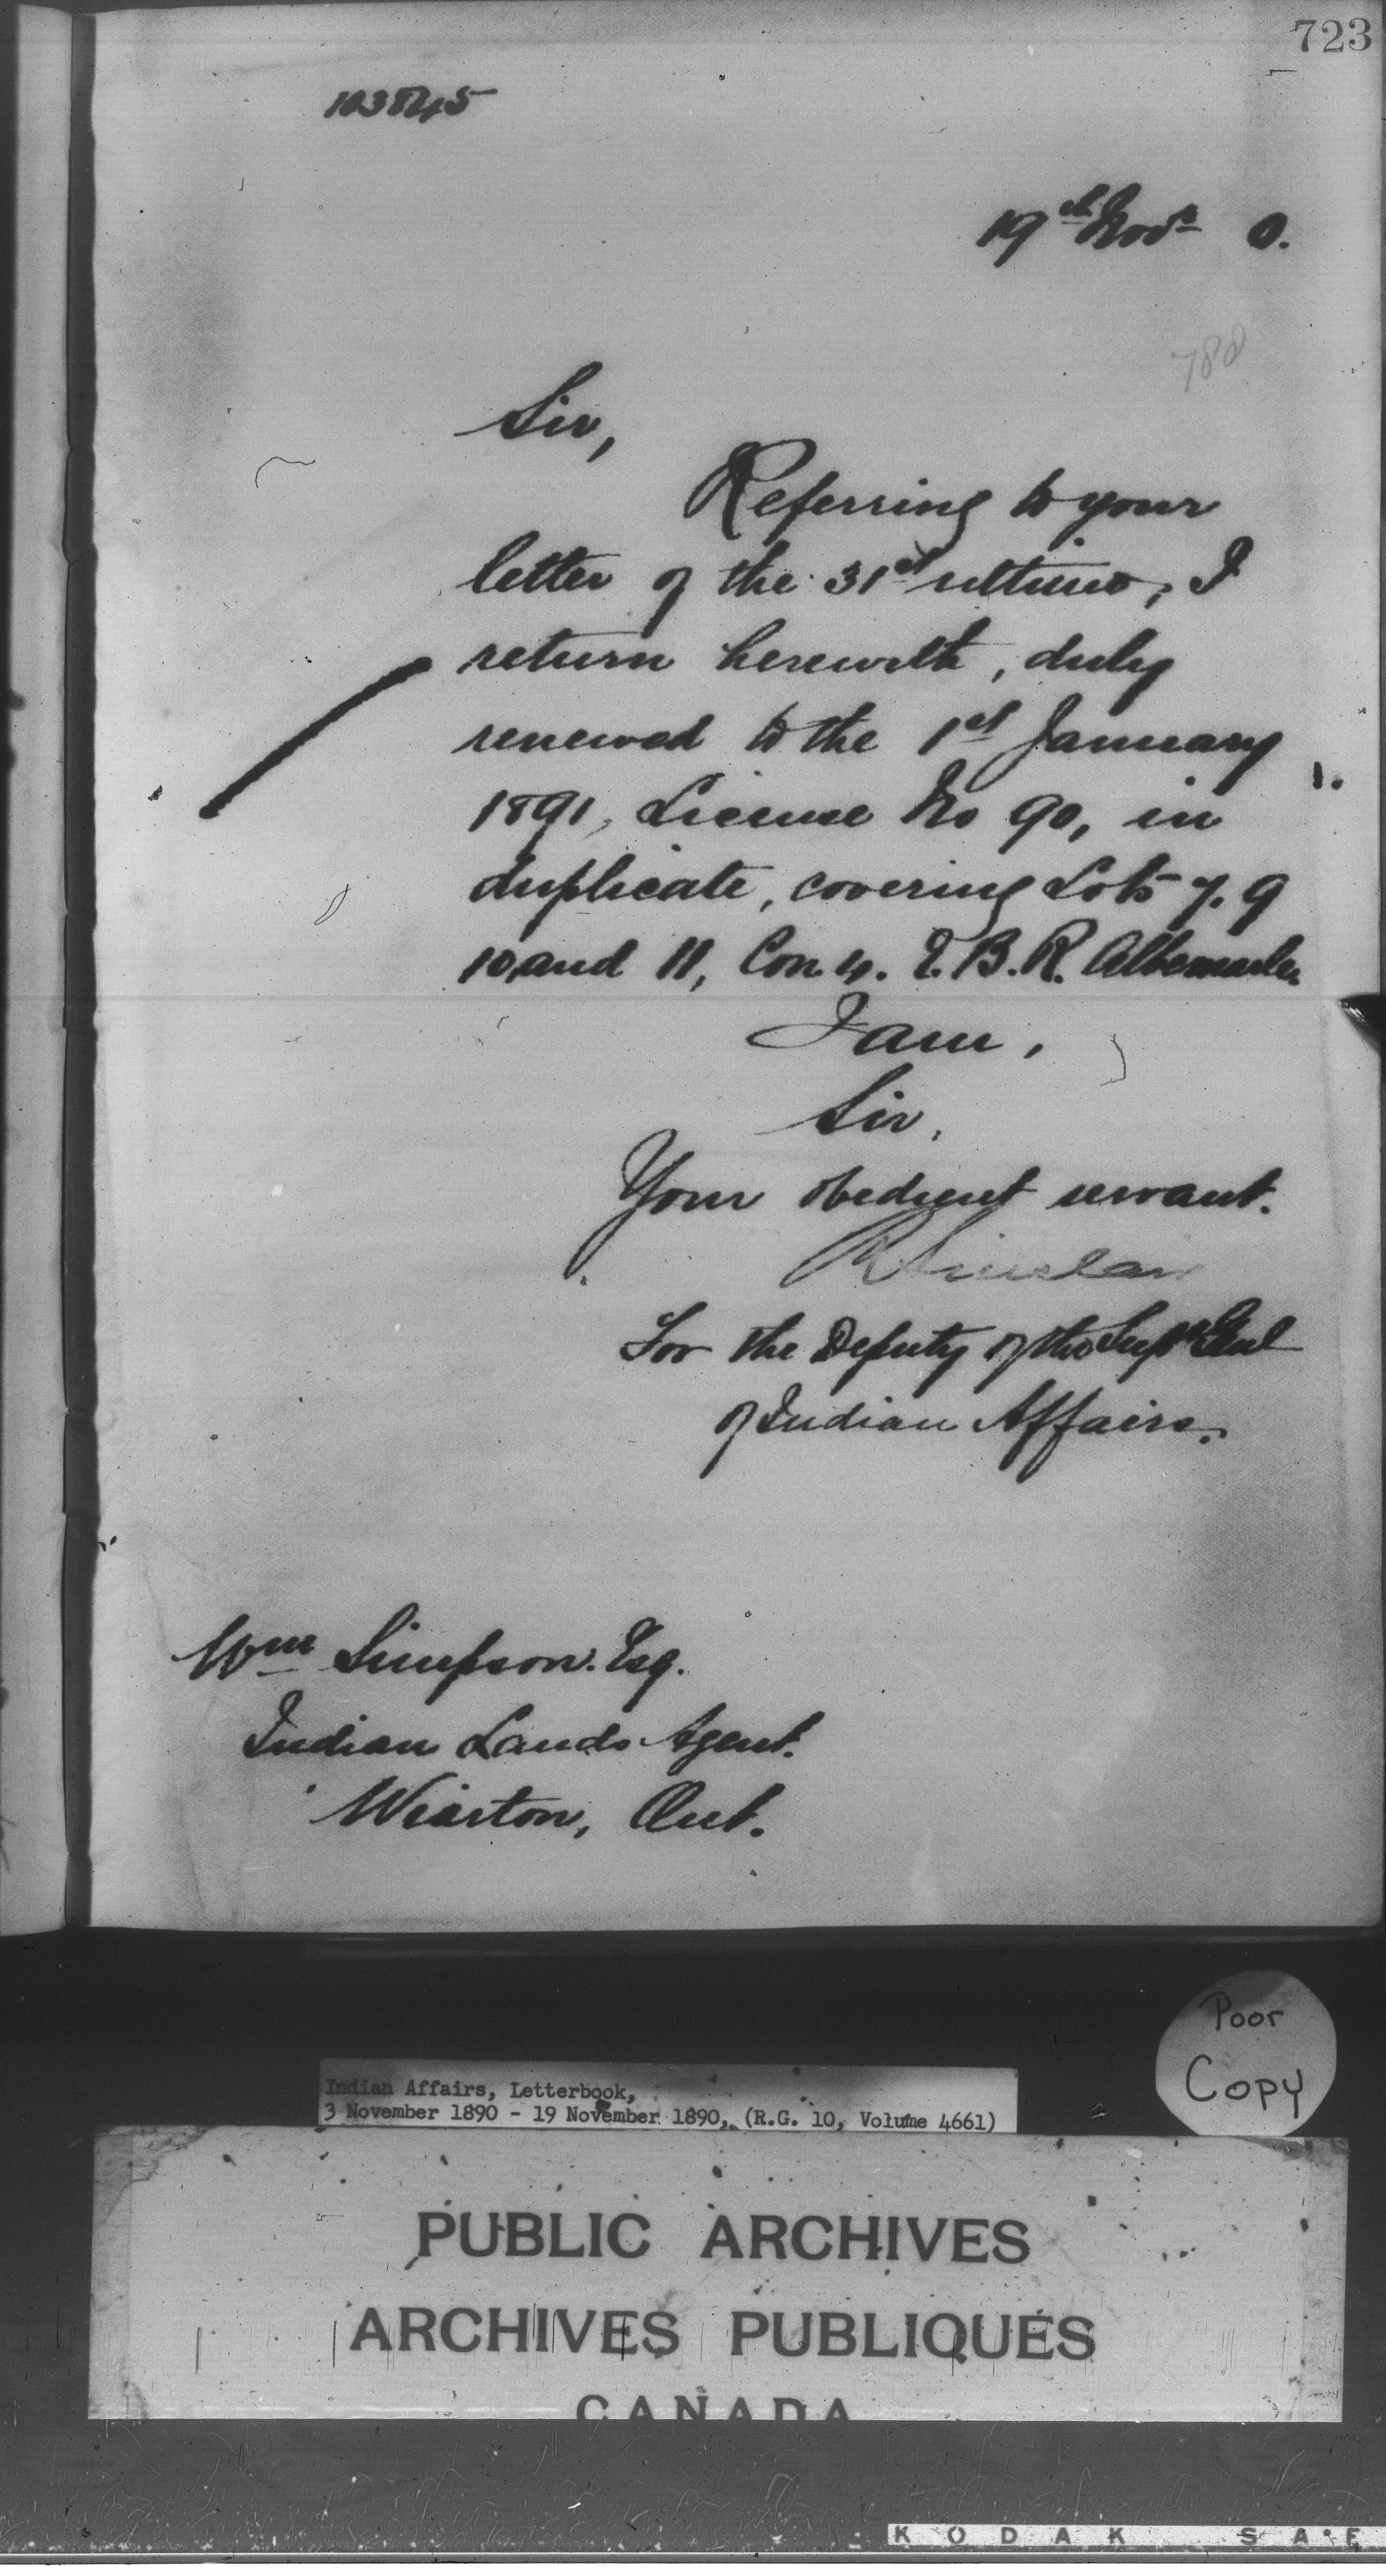 723
103845
19th Novr 0.
788
Sir,
Referring to your
letter of the 31st ultimo, I
return herewith, duly
renewed to the 1st January
1891, License No 90, in
duplicate, covering Lots 7. 9
10 and 11, Con. 4. E. B. R. Albemarle.
I am,
Sir,
Your obedient servant.
R Sinclair
For the Deputy of the Supt Genl
of Indian Affairs.
Wm Simpson. Esq.
Indian Lands Agent.
Wiarton, Ont.
Poor
Copy
Indian Affairs, Letterbook,
3 November 1890 - 19 November 1890, (R.G. 10, Volume 4661)
PUBLIC ARCHIVES
ARCHIVES PUBLIQUES
CANADA
KODAK SAFE